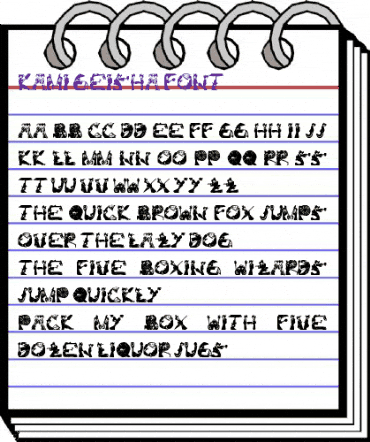 KAMI GEISHA FONT
AA BB CC DD EE FF GG HH II JJ
KK LL MM NN OO PP QQ RR SS
TT UU VV WW XX YY ZZ
THE QUICK BROWN FOX JUMPS
OVER THE LAZY DOG
THE FIVE BOXING WIZARDS
JUMP QUICKLY
PACK MY BOX WITH FIVE
DOZEN LIQUOR JUGS